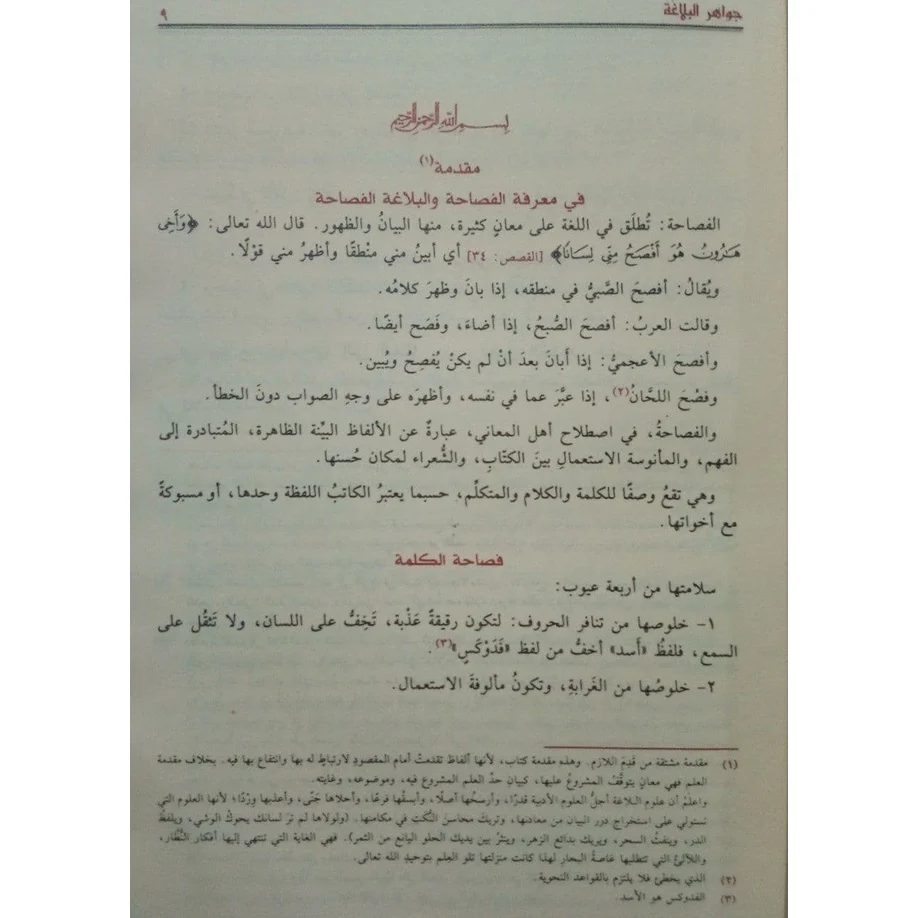 جواهر البلاغة ٩
بسم الله الرحمن الرحيم
مقدمة(١)
في معرفة الفصاحة والبلاغة الفصاحة
الفصاحة: تُطلَق في اللغة على معانٍ كثيرة، منها البيانُ والظهور. قال الله تعالى: ﴿وَأَخِى
هَـٰرُونُ هُوَ أَفْصَحُ مِنِّى لِسَانًا﴾ [القصص: ٣٤] أي أبينُ مني منْطقًا وأظهرُ مني قوْلًا.
ويُقالُ: أفصحَ الصَّبيُّ في منطقه، إذا بانَ وظهرَ كلامُه.
وقالت العربُ: أفصحَ الصُّبحُ، إذا أضاءَ، وفَصَح أيضًا.
وأفصحَ الأعجميُّ: إذا أَبانَ بعدَ أنْ لم يكنْ يُفصِحُ ويُبين.
وفصُحَ اللحَّانُ(٢)، إذا عبَّرَ عما في نفسه، وأظهرَه على وجهِ الصواب دونَ الخطأ.
والفصاحةُ، في اصطلاح أهل المعاني، عبارةٌ عن الألفاظ البيِّنة الظاهرة، المُتبادرة إلى
الفهم، والمأنوسة الاستعمال بينَ الكتّابِ، والشُّعراء لمكان حُسنها.
وهي تقعُ وصفًا للكلمة والكلام والمتكلِّم، حسبما يعتبرُ الكاتبُ اللفظة وحدها، أو مسبوكةً
مع أخواتها.
فصاحة الكلمة
سلامتها من أربعة عيوب:
١- خلوصها من تنافر الحروف: لتكون رقيقةً عَذْبة، تَخِفُّ على اللسان، ولا تَثقُل على
السمع، فلفظُ «أسد» أخفُّ من لفظ «فَدَوْكَسٍ»(٣).
٢- خلوصُها من الغَرابةِ، وتكونُ مألوفةَ الاستعمال.
(١) مقدمة مشتقة من قَدِمَ اللازم. وهذه مقدمة كتاب، لأنها ألفاظ تقدمتْ أمام المقصودِ لارتباطٍ له بها وانتفاع بها فيه. بخلاف مقدمة
العلم فهي معانٍ يتوقَّفُ المشروعُ عليها، كبيانِ حدِّ العلم المشروع فيه، وموضوعه، وغايته.
واعلمْ أن علوم البلاغة أجلُّ العلوم الأدبية قدرًا، وأرسخُها أصلًا، وأبسقُها فرعًا، وأحلاها جَنًى، وأعذبها وِرْدًا؛ لأنها العلوم التي
تستولي على استخراج درر البيان من معادنها، وتريك محاسنَ النُّكتِ في مكامنها. (ولولاها لم ترَ لسانك يحوكُ الوشي، ويلفظُ
الدرر، وينفثُ السحر، ويريك بدائع الزهر، وينثرُ بين يديك الحلو اليانع من الثمر). فهي الغاية التي تنتهي إليها أفكار النُّظّار،
واللآلئُ التي تتطلبها غاصةُ البحارِ لهذا كانت منزلتها تلو العِلم بتوحيدِ الله تعالى.
(٢) الذي يخطئ فلا يلتزم بالقواعد النحوية.
(٣) الفدوكس هو الأسد.